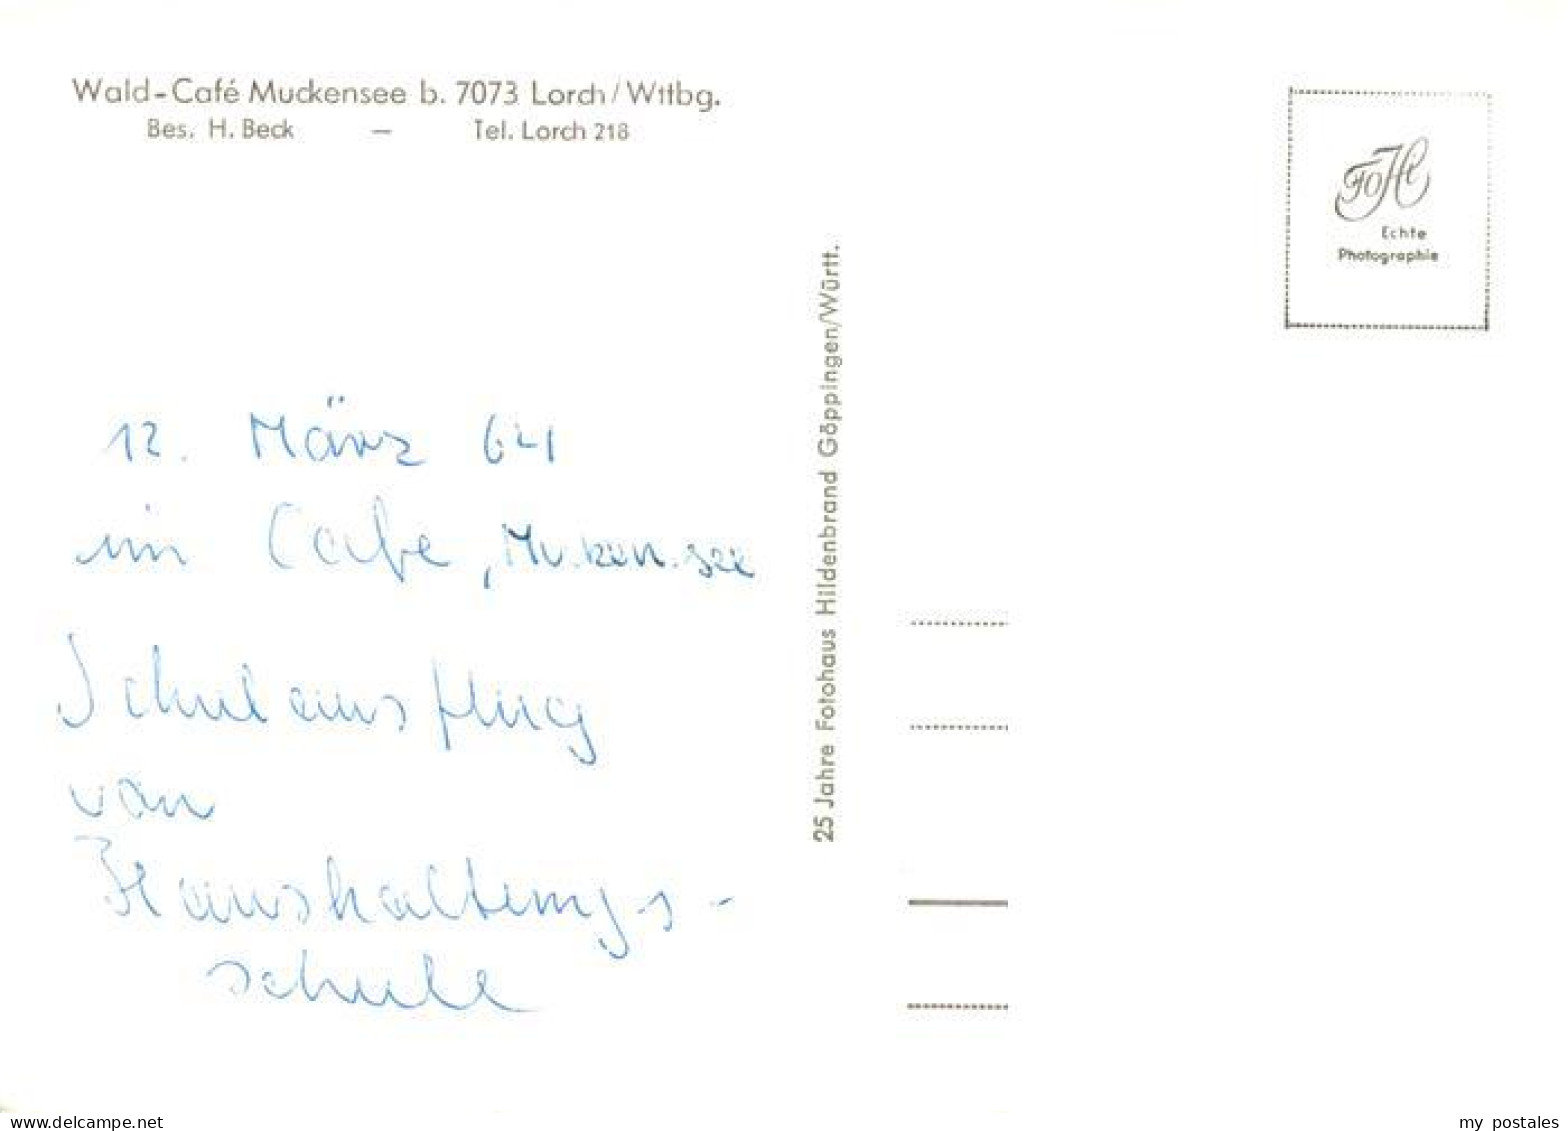 Wald-Café Muckensee b. 7073 Lorch/Wttbg.
Bes. H. Beck — Tel. Lorch 218
FoHi
Echte
Photographie
25 Jahre Fotohaus Hildenbrand Göppingen/Württ.
12. März 64
im Cafe, Mu.ken.see
Schulausflug
von
Haushaltungs-
schule
www.delcampe.net
my postales